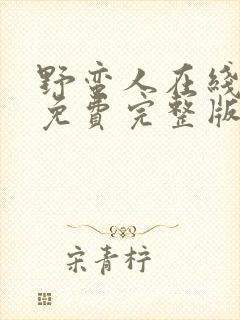 野蛮人在线
免費完整版
宋青柠